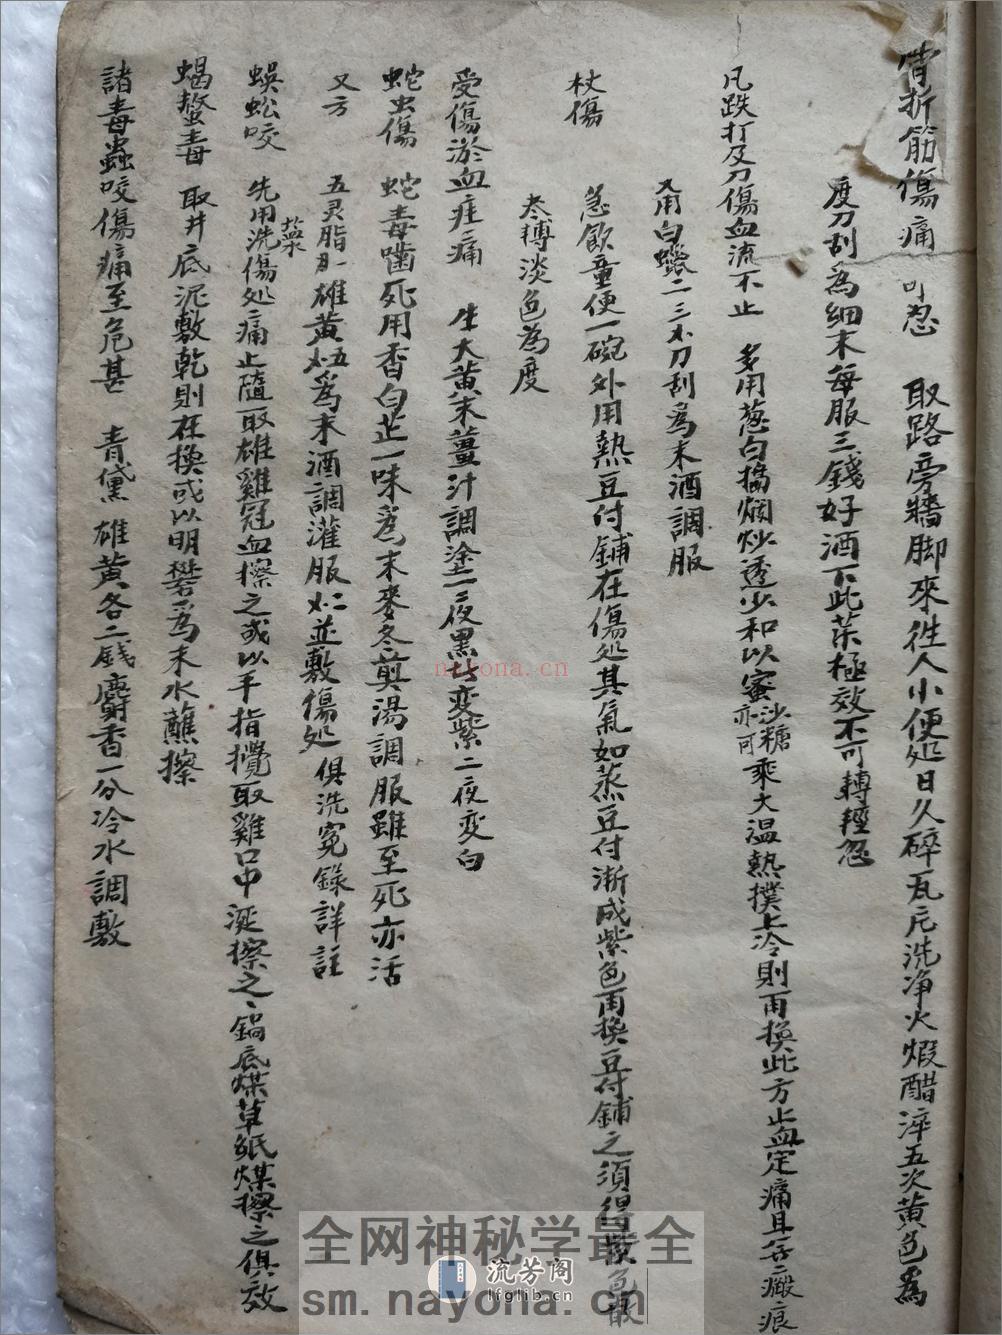 骨折筋傷痛 可忍 取路旁牆脚來徃人小便処日久碎瓦片洗净火煅醋淬五次黄色為
度刀刮為細末每服三錢好酒下此藥極效不可轉輕忽
凡跌打及刀傷血流不止 多用葱白搗爛炒透少和以蜜沙糖亦可乘大温熱撲上冷則再換此方止血定痛且無瘢痕
又用白蠟二三刀刮為末酒調服
杖傷 急飲童便一碗外用熱豆付鋪在傷処其氣如蒸豆付漸成紫色再換豆付鋪之須得紫色散
轉淡色為度
受傷淤血疰痛 生大黄末薑汁調塗一夜黑者変紫二夜変白
蛇虫傷 蛇毒嚙死用香白芷一味為末麥冬煎湯調服雖至死亦活
又方 五灵脂 雄黄 為末酒調灌服 並敷傷処 俱洗寃錄詳註
蜈蚣咬 先用藥洗傷処痛止隨取雄雞冠血擦之或以手指攪取雞口中涎擦之鍋底煤草紙煤擦之俱效
蝎螯毒 取井底泥敷乾則在換或以明礬為末水蘸擦
諸毒蟲咬傷痛至危甚 青黛雄黄各二錢麝香一分冷水調敷
全网神秘学最全
sm.nayona.cn
nayona.cn
流芳阁
lfglib.cn